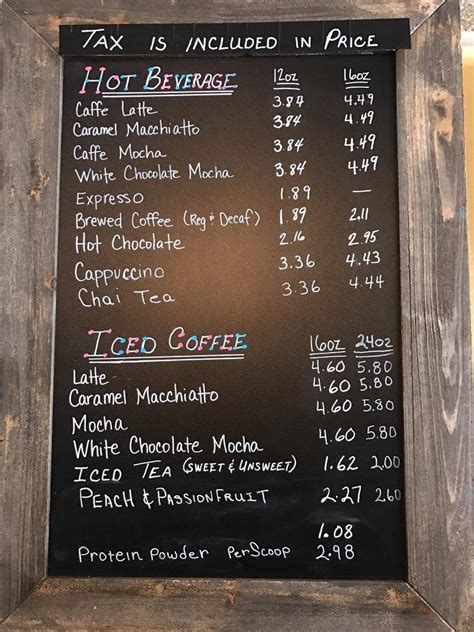 TAX IS INCLUDED IN PRICE
HOT BEVERAGE 12oz 16oz
Caffe Latte 3.84 4.49
Caramel Macchiatto 3.84 4.49
Caffe Mocha 3.84 4.49
White Chocolate Mocha 3.84 4.49
Expresso 1.89 —
Brewed Coffee (Reg & Decaf) 1.89 2.11
Hot Chocolate 2.16 2.95
Cappuccino 3.36 4.43
Chai Tea 3.36 4.44
ICED COFFEE 16oz 24oz
Latte 4.60 5.80
Caramel Macchiatto 4.60 5.80
Mocha 4.60 5.80
White Chocolate Mocha 4.60 5.80
ICED TEA (SWEET & UNSWEET) 1.62 2.00
PEACH & PASSIONFRUIT 2.27 2.60
1.08
Protein Powder PerScoop 2.98